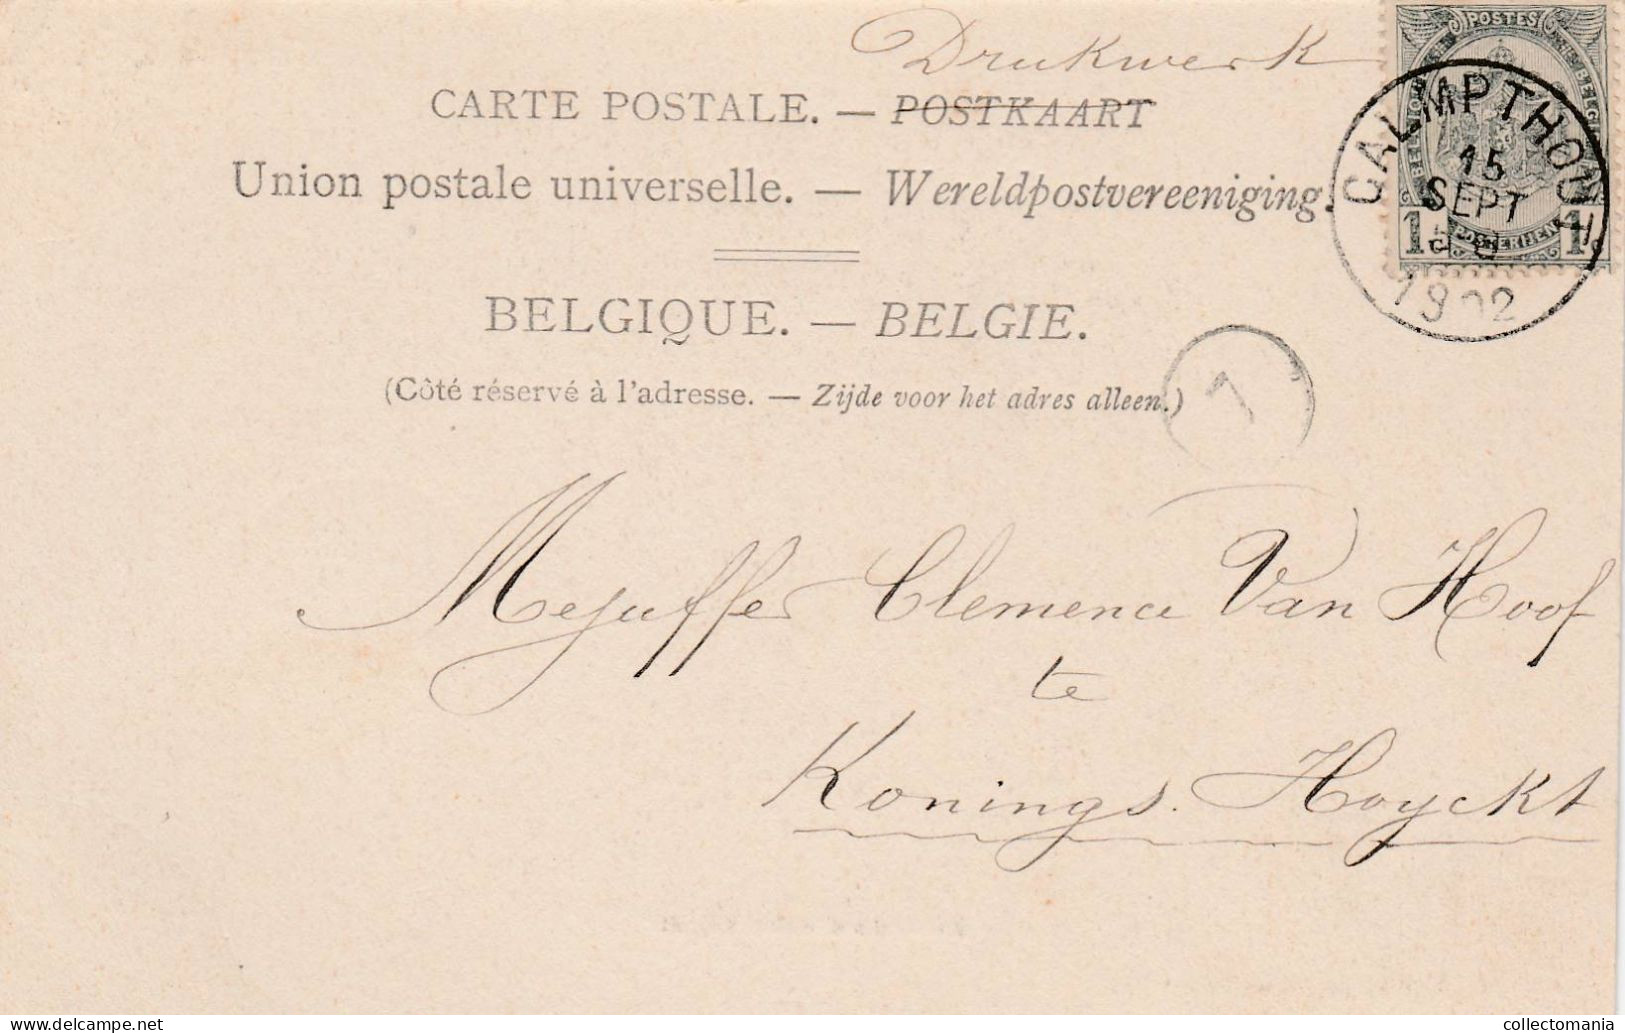 Drukwerk
CARTE POSTALE. — POSTKAART
Union postale universelle. — Wereldpostvereeniging.
BELGIQUE. — BELGIE.
(Côté réservé à l'adresse. — Zijde voor het adres alleen.)
POSTES
1 POSTERIJEN 1
CALMPTHOUT
15
SEPT
1902
7
Mejuffer Clemence Van Hoof
te
Konings. Hoyckt
delcampe.net
collectomania